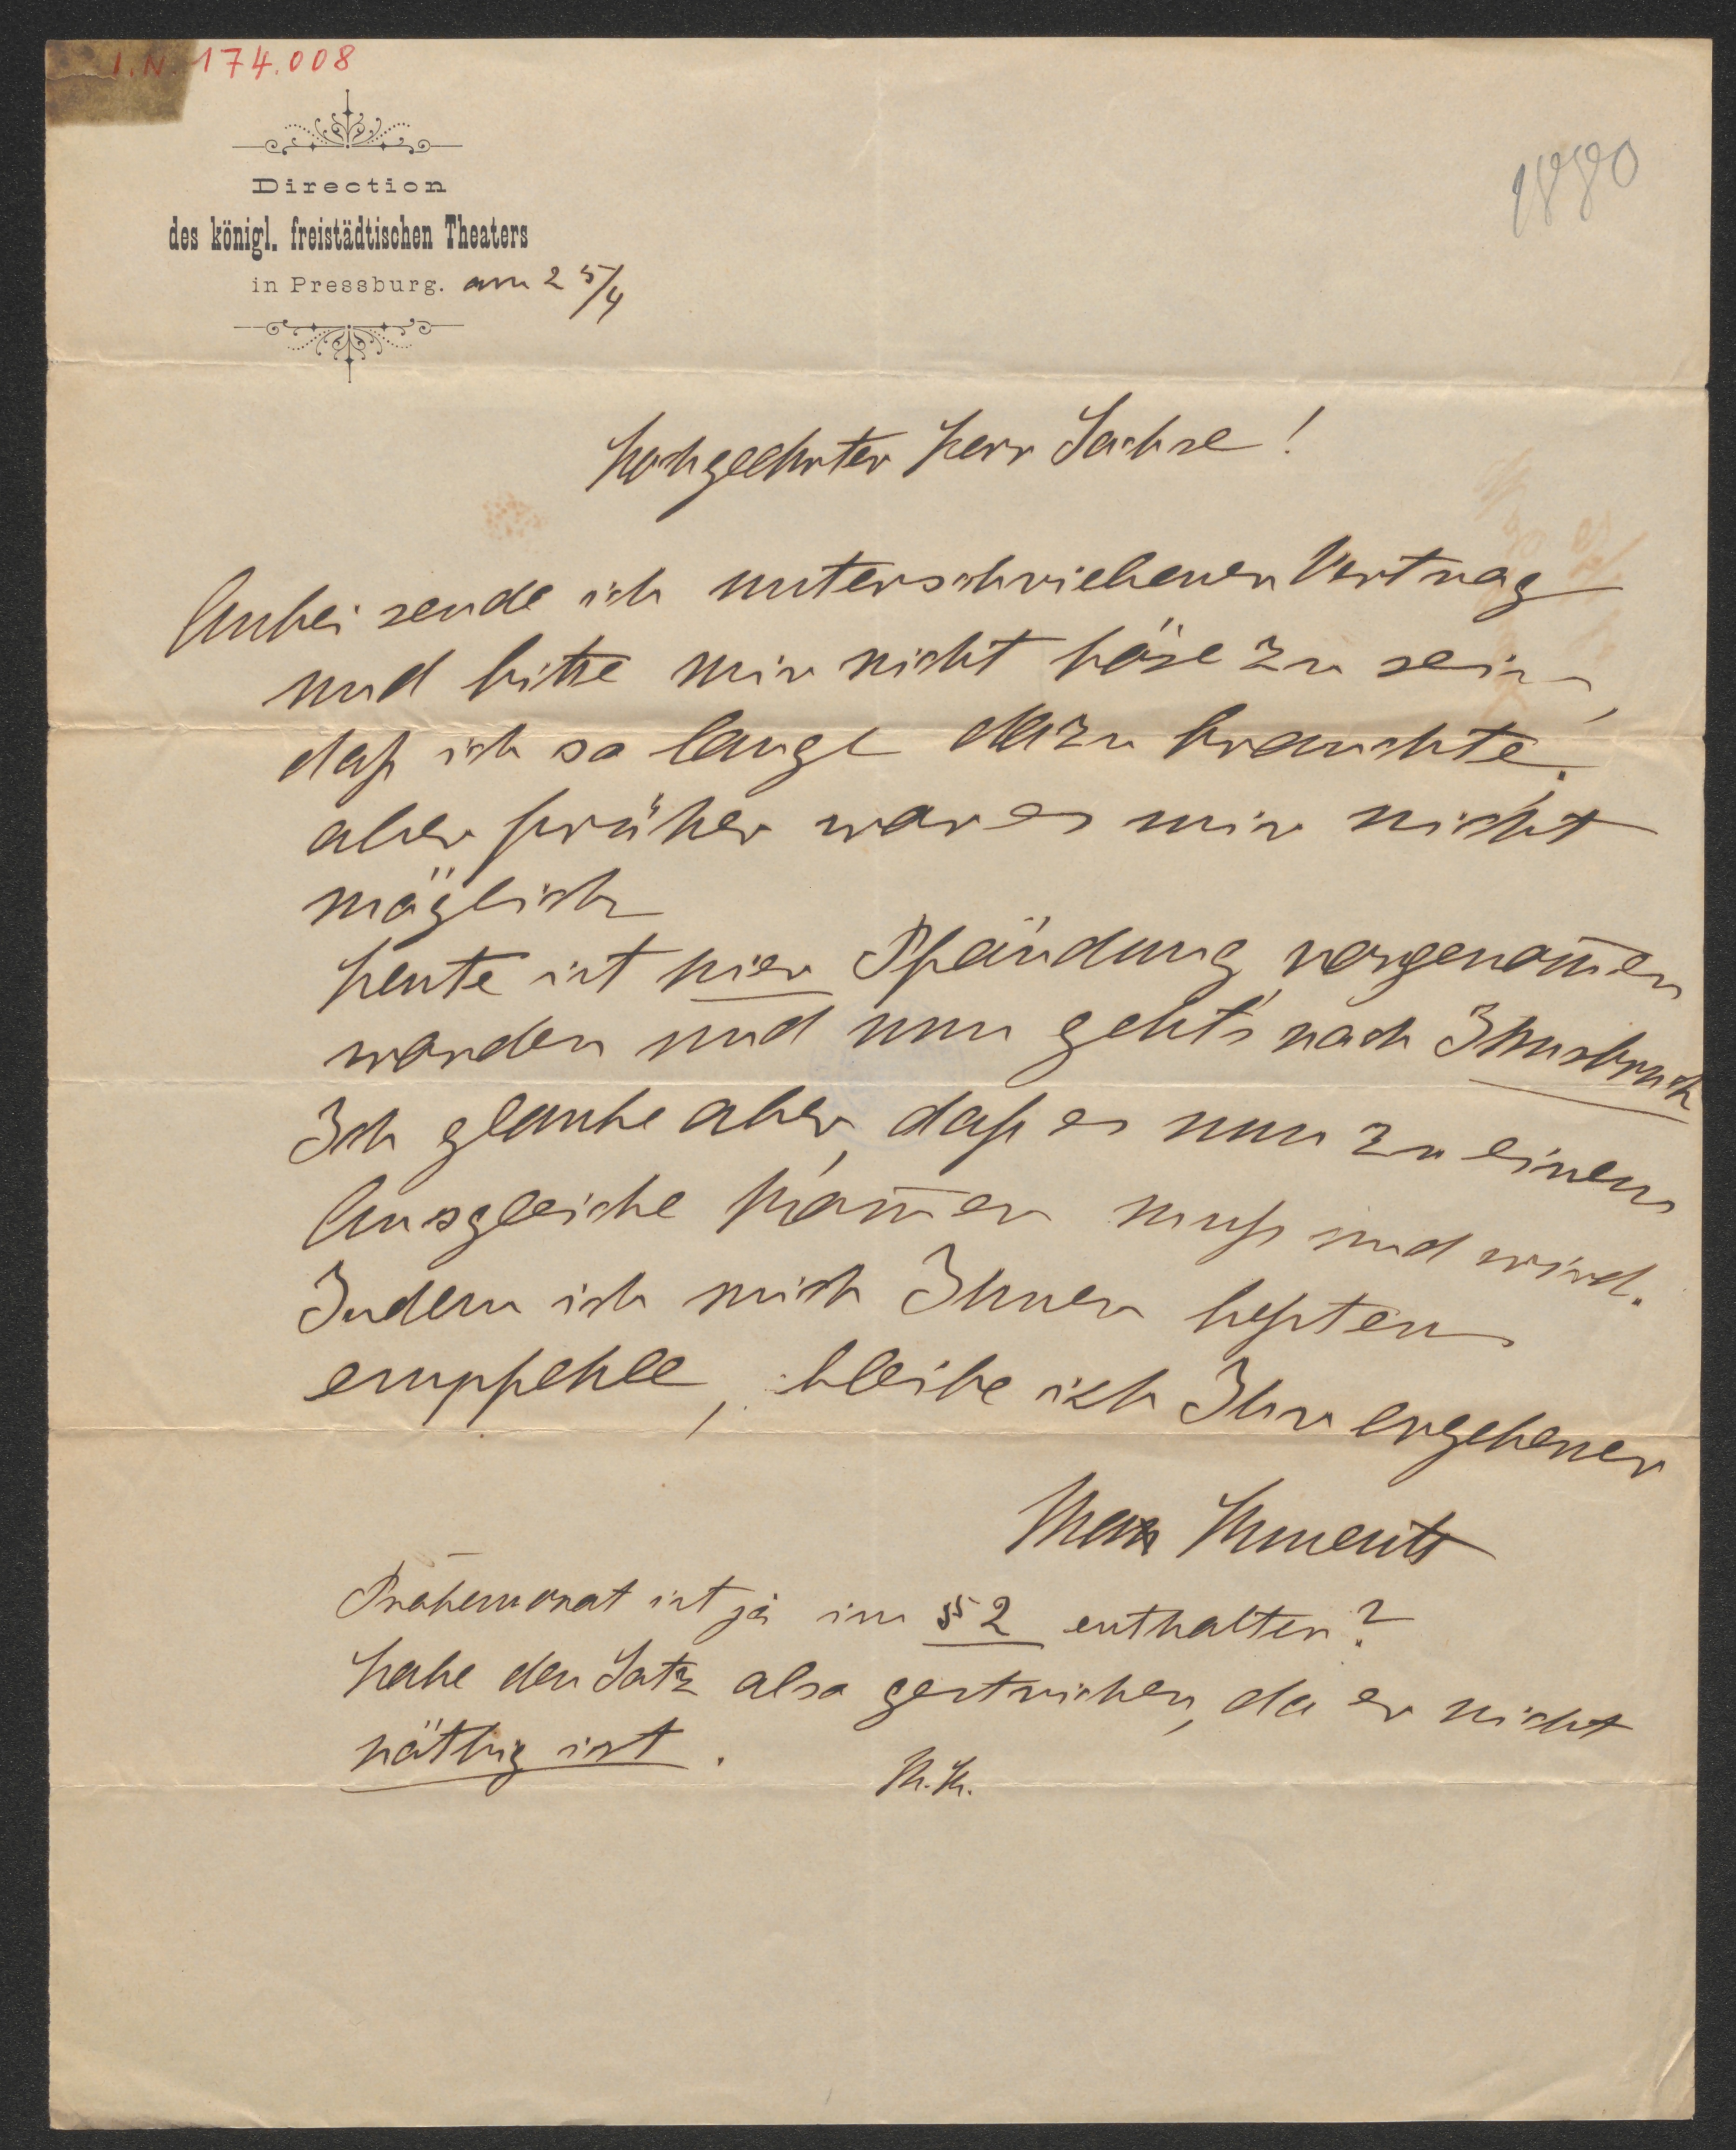 I.N. 174.008
1880
Direction
des königl. freistädtischen Theaters
in Pressburg. am 25/4
Hochgeehrter Herr Sachse!
Anbei sende ich unterschriebenen Vertrag
und bitte mir nicht böse zu sein,
daß ich so lange dazu brauchte,
aber früher war es mir nicht
möglich
Heute ist hier Pfändung vorgenom̅en
worden und nun geht's nach Innsbruck
Ich glaube aber, daß es nun zu einem
Ausgleiche kom̅en muß und wird.
Indem ich mich Ihnen bestens
empfehle, bleibe ich Ihr ergebener
Max Kmentt
Probemonat ist ja im § 2 enthalten?
Habe den Satz also gestrichen, da er nicht
nöthig ist.
M.K.